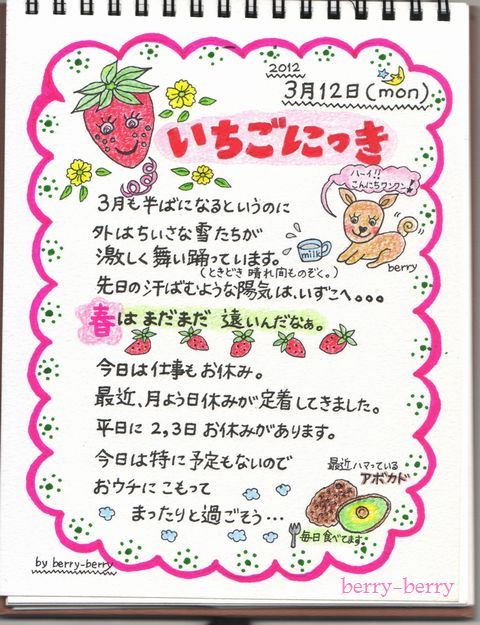 2012
3月12日(mon)
いちごにっき
ハーイ!!
こんにちワンワン!
3月も半ばになるというのに
外はちいさな雪たちが
激しく舞い踊っています。
(ときどき晴れ間ものぞく。)
milk
berry
先日の汗ばむような陽気は、いずこへ。。。
春はまだまだ遠いんだなぁ。
今日は仕事もお休み。
最近、月よう日休みが定着してきました。
平日に2,3日お休みがあります。
今日は特に予定もないので
おウチにこもって
まったりと過ごそう…
最近ハマっている
アボカド
毎日食べてます。
by berry-berry
berry-berry